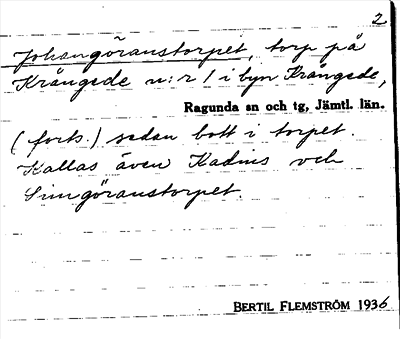 2
Johangöranstorpet, torp på
Krångede n:r 1 i byn Krångede,
Ragunda sn och tg, Jämtl. län.
(forts.) sedan bott i torpet.
Kallas även Kadins och
Simgöranstorpet.
BERTIL FLEMSTRÖM 1936